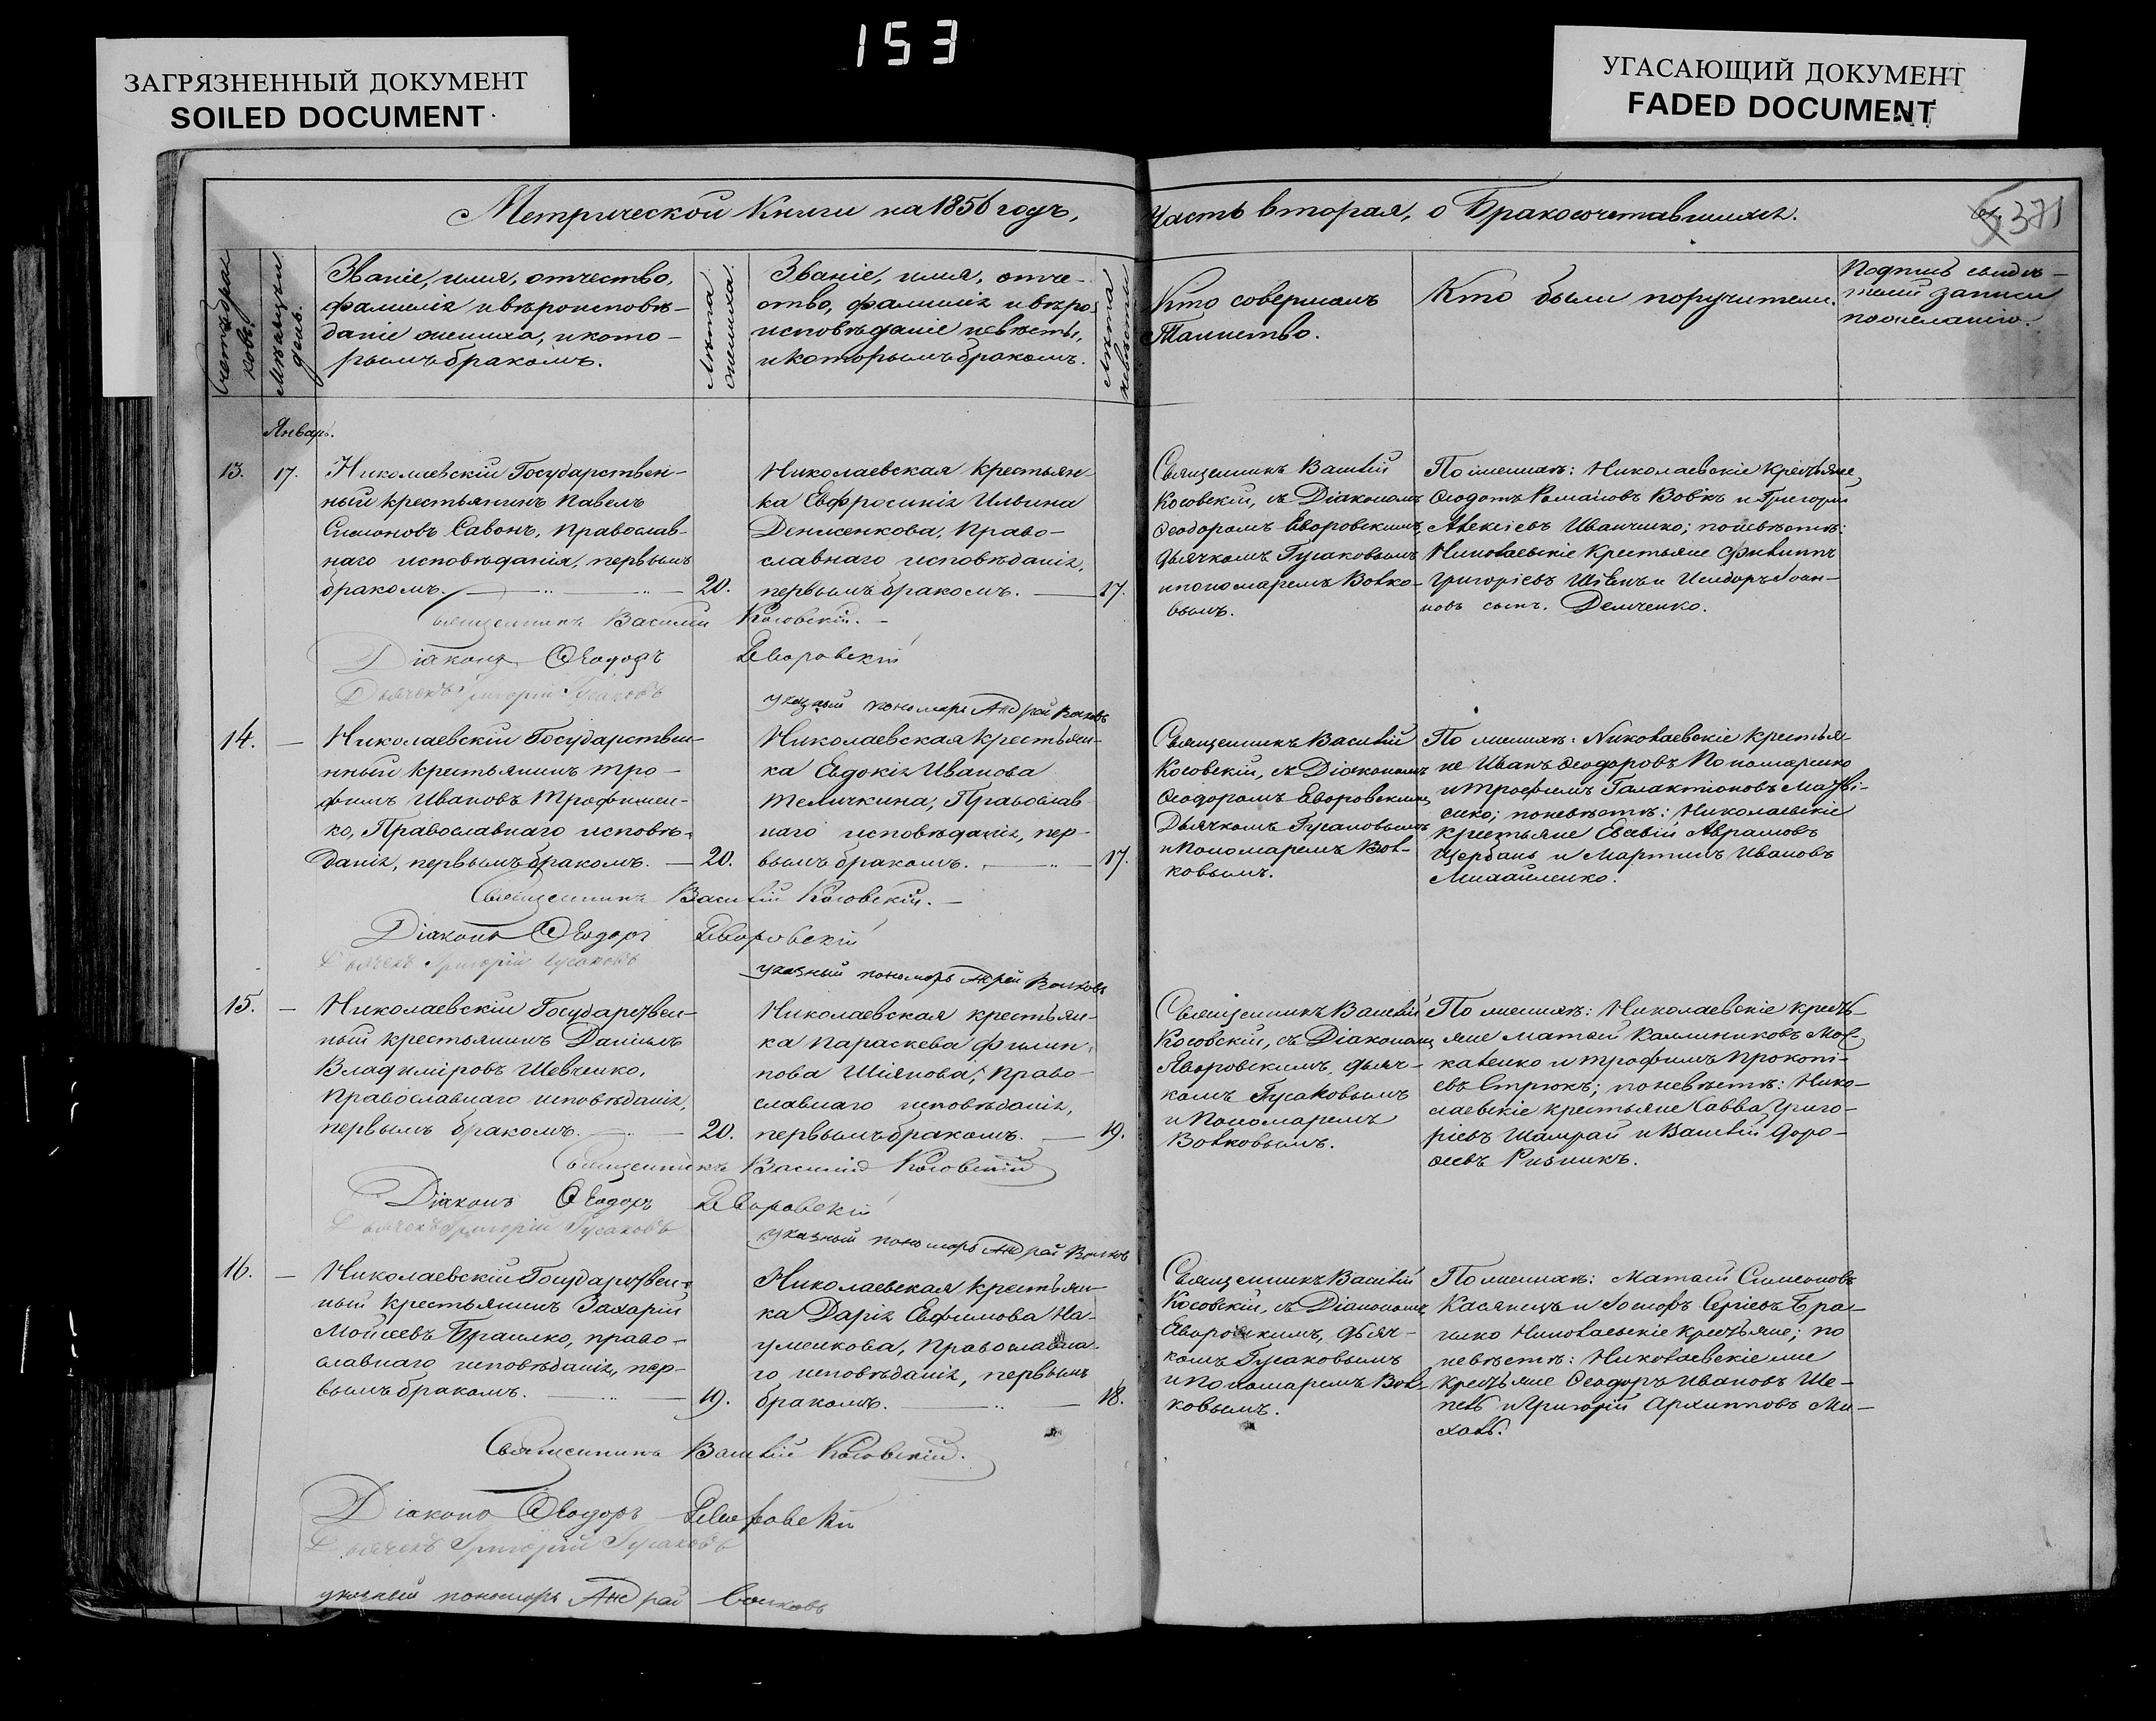 153
ЗАГРЯЗНЕННЫЙ ДОКУМЕНТ
SOILED DOCUMENT
УГАСАЮЩИЙ ДОКУМЕНТ
FADED DOCUMENT
Метрической Книги на 1856 годъ,
часть вторая, о Бракосочетавшихся.
371
Счетъ бра-
ковъ.
Мѣсяцъ и
день.
Званіе, имя, отчество,
фамилія и вѣроисповѣ-
даніе жениха, и кото-
рымъ бракомъ.
Лѣта
жениха.
Званіе, имя, отче-
ство, фамилія и вѣро-
исповѣданіе невѣсты,
и которымъ бракомъ.
Лѣта
невѣсты
Кто совершалъ
Таинство.
Кто были поручители.
Подпись свидѣ-
телей записи
по желанію.
Январь.
13.
17.
Николаевскій Государствен-
ный крестьянинъ Павелъ
Симоновъ Савонъ, Православ-
наго исповѣданія, первымъ
бракомъ.
20.
Николаевская крестьян-
ка Евфросинія Ильина
Денисенкова, Право-
славнаго исповѣданія,
первымъ бракомъ.
17.
Священникъ Василій
Косовскій, съ Діакономъ
Ѳеодоромъ Яворовскимъ,
Дьячкомъ Гусаковымъ
и пономаремъ Волко-
вымъ.
По женихѣ: Николаевскіе крестьяне
Ѳеодотъ Романовъ Вовкъ и Григорій
Алексіевъ Иванченко; по невѣстѣ:
Николаевскіе Крестьяне Филиппъ
Григоріевъ и Исидоръ Іоан-
новъ сынъ Демченко.
Священникъ Василій Косовскій.
Діаконъ Ѳеодоръ Яворовскій
Дьячекъ Григорій Гусаковъ
указный пономарь Андрей Волковъ
14.
Николаевскій Государствен-
нный крестьянинъ Тро-
фимъ Ивановъ Трофимен-
ко, Православнаго исповѣ-
данія, первымъ бракомъ.
20.
Николаевская крестьян-
ка Евдокія Иванова
Теличкина, Православ-
наго исповѣданія, пер-
вымъ бракомъ.
17.
Священникъ Василій
Косовскій, съ Діакономъ
Ѳеодоромъ Яворовскимъ,
Дьячкомъ Гусаковымъ
и Пономаремъ Вол-
ковымъ.
По женихѣ: Николаевскіе крестья-
не Иванъ Ѳеодоровъ Пономаренко
и Трофимъ Галактіоновъ Матві-
енко; по невѣстѣ: Николаевскіе
крестьяне Евсѣвій Аврамовъ
Щербань и Мартинъ Ивановъ
Михайленко.
Священникъ Василій Косовскій.
Діаконъ Ѳеодоръ Яворовскій
Дьячекъ Григорій Гусаковъ
указный пономарь Андрей Волковъ
15.
Николаевскій Государствен-
ный крестьянинъ Даніилъ
Владиміровъ Шевченко,
Православнаго исповѣданія,
первымъ бракомъ.
20.
Николаевская крестьян-
ка Параскева Филип-
пова Шіянова, Право-
славнаго исповѣданія,
первымъ бракомъ.
19.
Священникъ Василій
Косовскій, съ Діакономъ
Яворовскимъ, дьяч-
комъ Гусаковымъ
и Пономаремъ
Волковымъ.
По женихѣ: Николаевскіе кресть-
яне Матѳій Калиниковъ Мос-
каленко и Трофимъ Прокопі-
евъ Стрюкъ; по невѣстѣ: Нико-
лаевскіе крестьяне Савва Григо-
ріевъ Шамрай и Василій Доро-
ѳеевъ Ризникъ.
Священникъ Василій Косовскій
Діаконъ Ѳеодоръ Яворовскій
Дьячекъ Григорій Гусаковъ
указный пономарь Андрей Волковъ
16.
Николаевскій Государствен-
ный крестьянинъ Захарій
Моисеевъ Браилко, право-
славнаго исповѣданія, пер-
вымъ бракомъ.
19.
Николаевская крестьян-
ка Дарія Евфимова На-
уменкова, Православна-
го исповѣданія, первымъ
бракомъ.
18.
Священникъ Василій
Косовскій, съ Діакономъ
Яворовскимъ, дьяч-
комъ Гусаковымъ
и Пономаремъ Вол-
ковымъ.
По женихѣ: Матѳій Симеоновъ
Касянецъ и Іосифъ Сергіевъ Бра-
илко Николаевскіе крестьяне; по
невѣстѣ: Николаевскіе же
крестьяне Ѳеодоръ Ивановъ Ше-
пель и Григорій Архипповъ Ми-
халь.
Священникъ Василій Косовскій.
Діаконъ Ѳеодоръ Яворовскій
Дьячекъ Григорій Гусаковъ
указный пономарь Андрей Волковъ